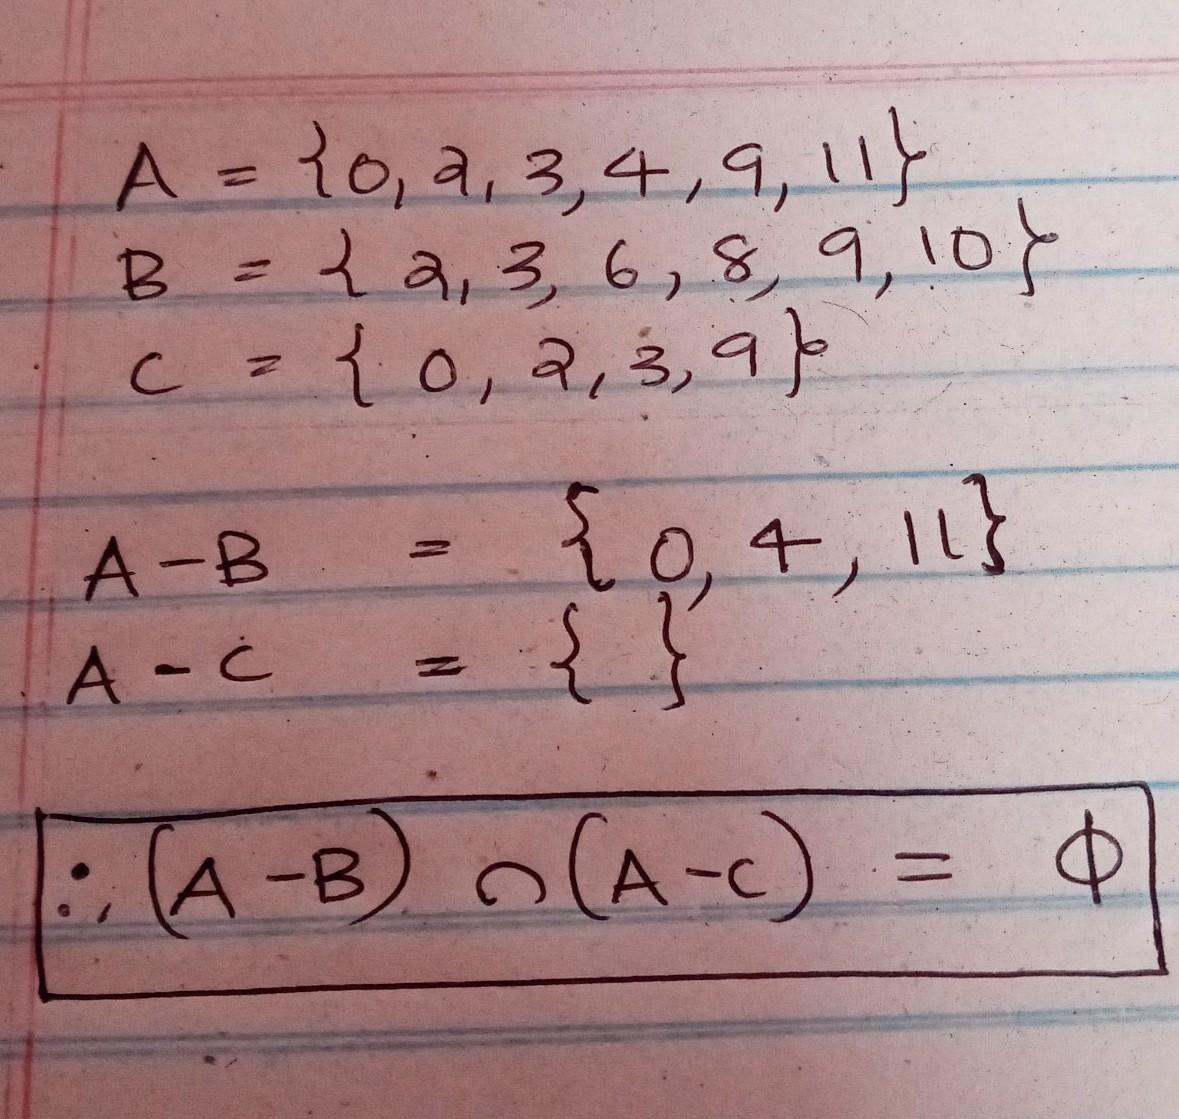 A = {0, 2, 3, 4, 9, 11}
B = { 2, 3, 6, 8, 9, 10}
C = { 0, 2, 3, 9}
A - B = {0, 4, 11}
A - C = { }
∴, (A - B) ∩ (A - C) = ϕ